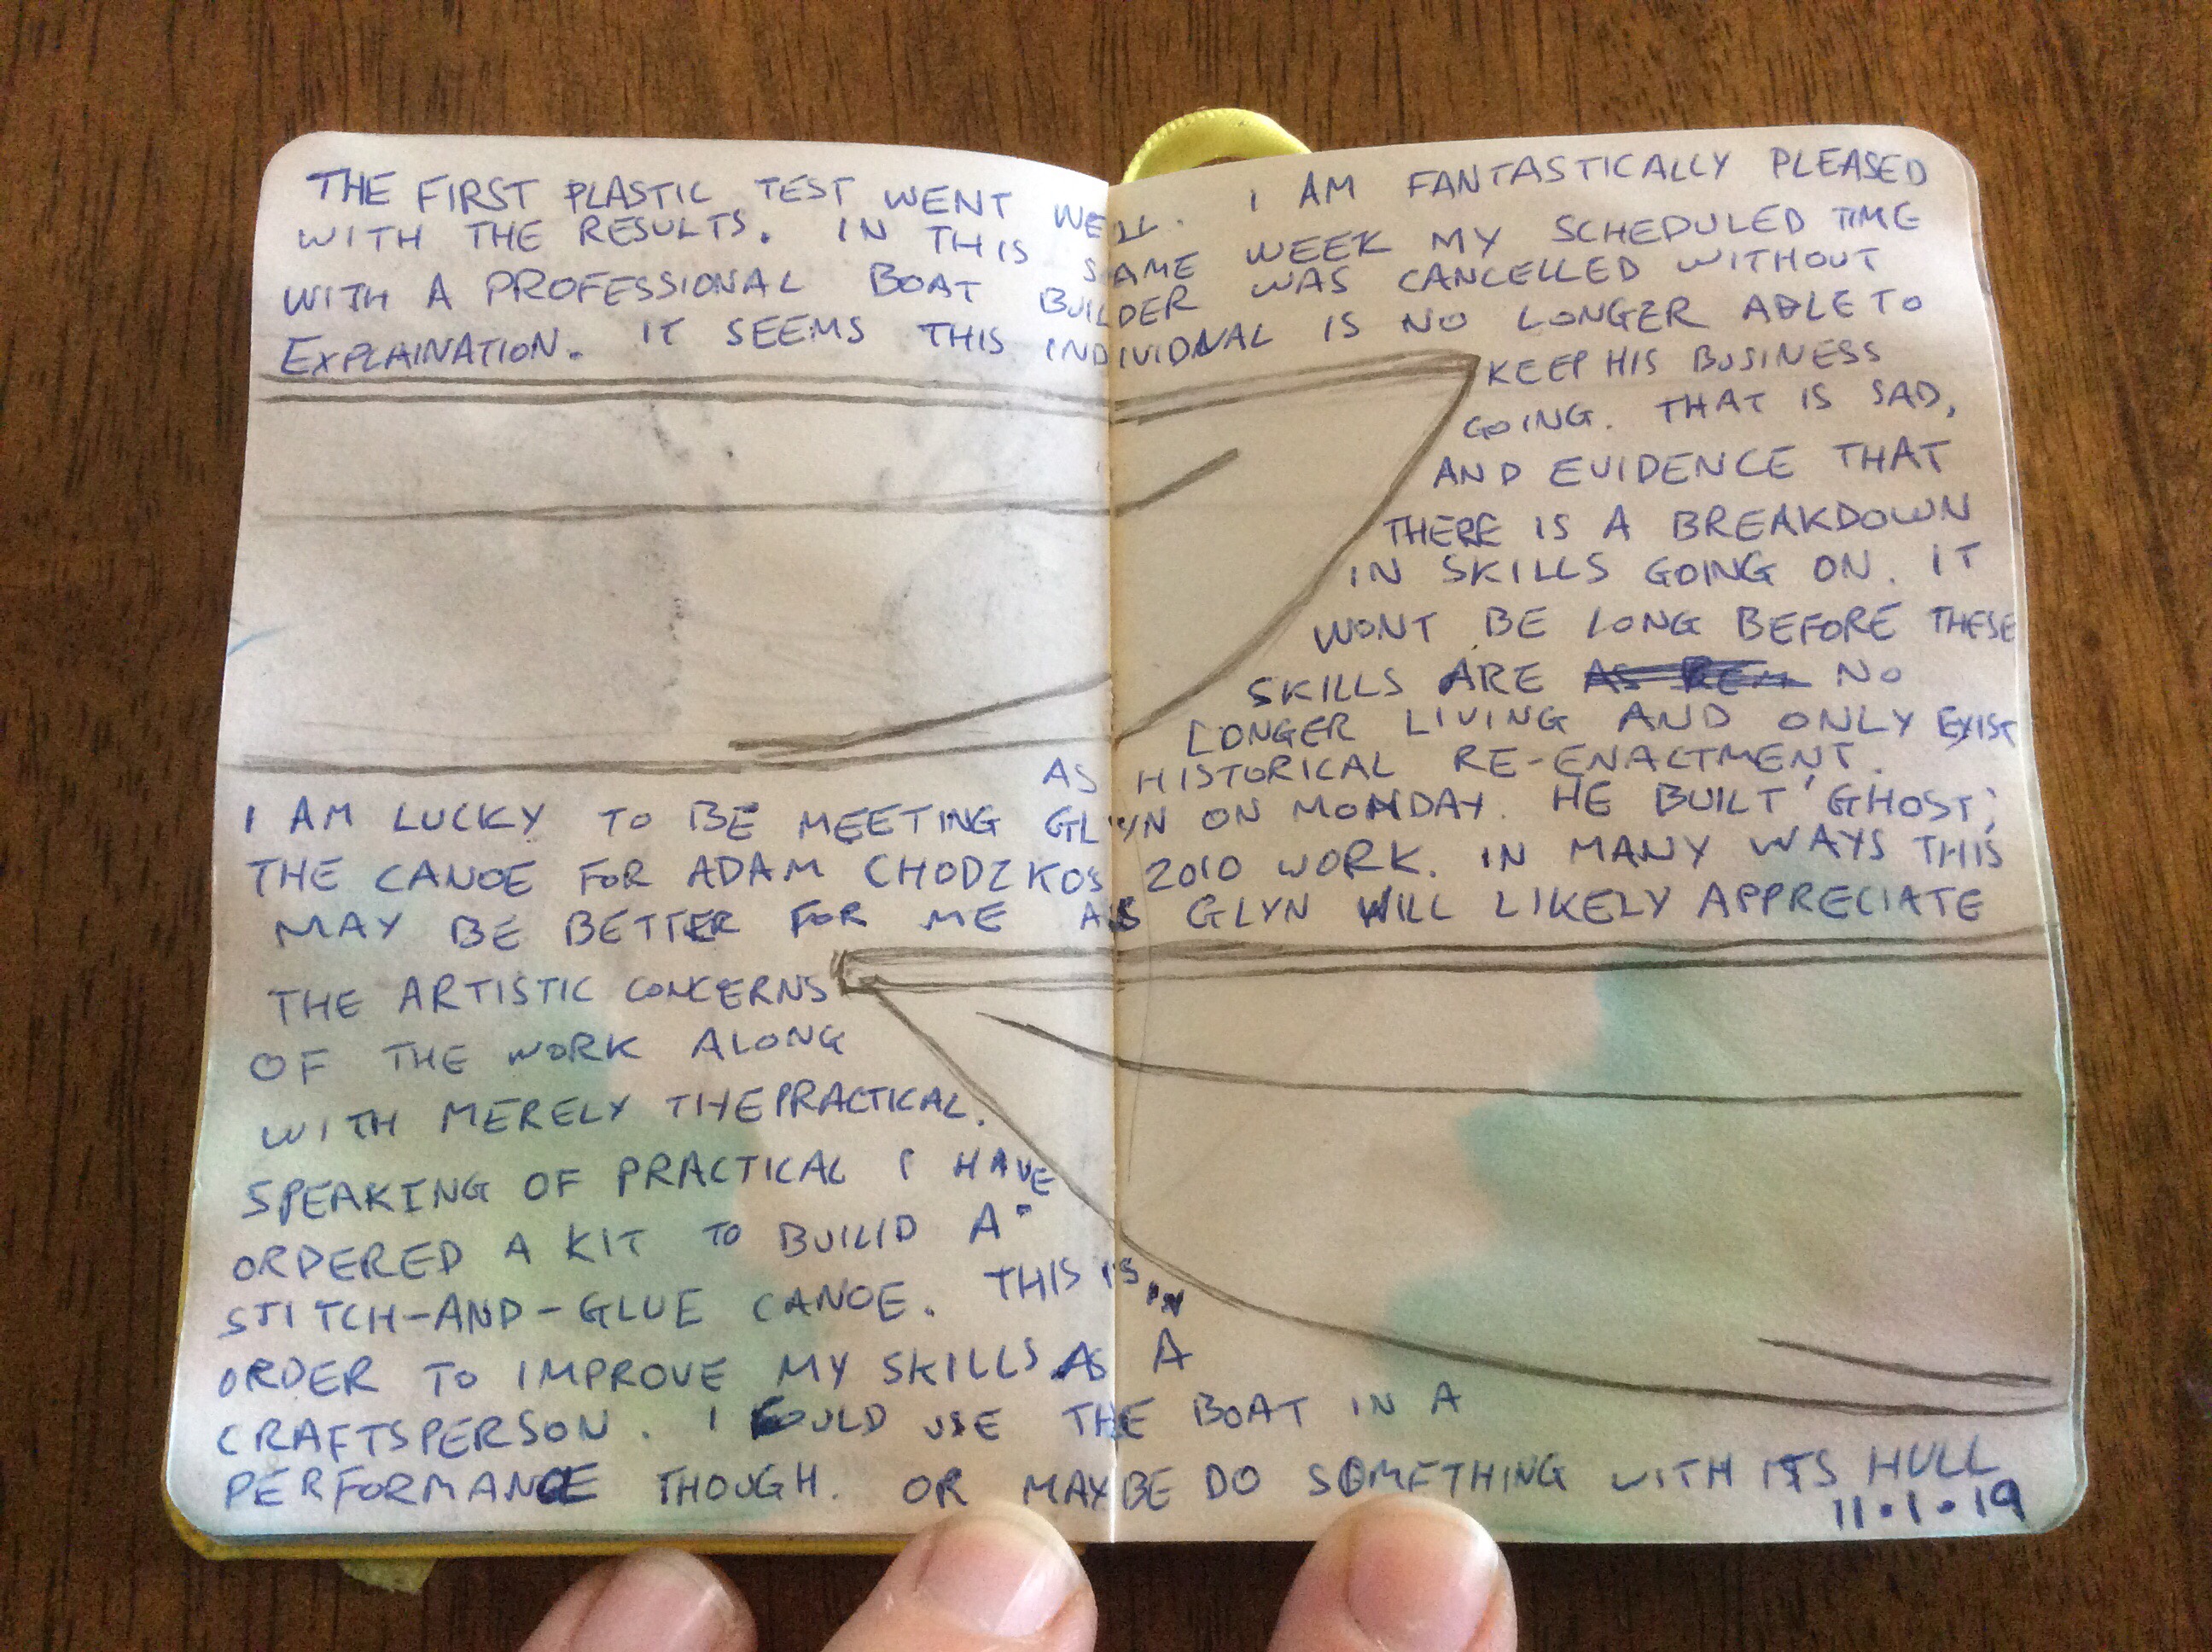 THE FIRST PLASTIC TEST WENT WELL. I AM FANTASTICALLY PLEASED
WITH THE RESULTS. IN THIS SAME WEEK MY SCHEDULED TIME
WITH A PROFESSIONAL BOAT BUILDER WAS CANCELLED WITHOUT
EXPLAINATION. IT SEEMS THIS INDIVIDUAL IS NO LONGER ABLE TO
KEEP HIS BUSINESS
GOING. THAT IS SAD,
AND EVIDENCE THAT
THERE IS A BREAKDOWN
IN SKILLS GOING ON. IT
WONT BE LONG BEFORE THESE
SKILLS ARE NO
LONGER LIVING AND ONLY EXIST
AS HISTORICAL RE-ENACTMENT.
I AM LUCKY TO BE MEETING GLYN ON MONDAY. HE BUILT 'GHOST,'
THE CANOE FOR ADAM CHODZKOS 2010 WORK. IN MANY WAYS THIS
MAY BE BETTER FOR ME AS GLYN WILL LIKELY APPRECIATE
THE ARTISTIC CONCERNS
OF THE WORK ALONG
WITH MERELY THE PRACTICAL.
SPEAKING OF PRACTICAL I HAVE
ORDERED A KIT TO BUILID A
STITCH-AND-GLUE CANOE. THIS IS IN
ORDER TO IMPROVE MY SKILLS AS A
CRAFTSPERSON. I COULD USE THE BOAT IN A
PERFORMANCE THOUGH. OR MAYBE DO SOMETHING WITH ITS HULL
11.1.19